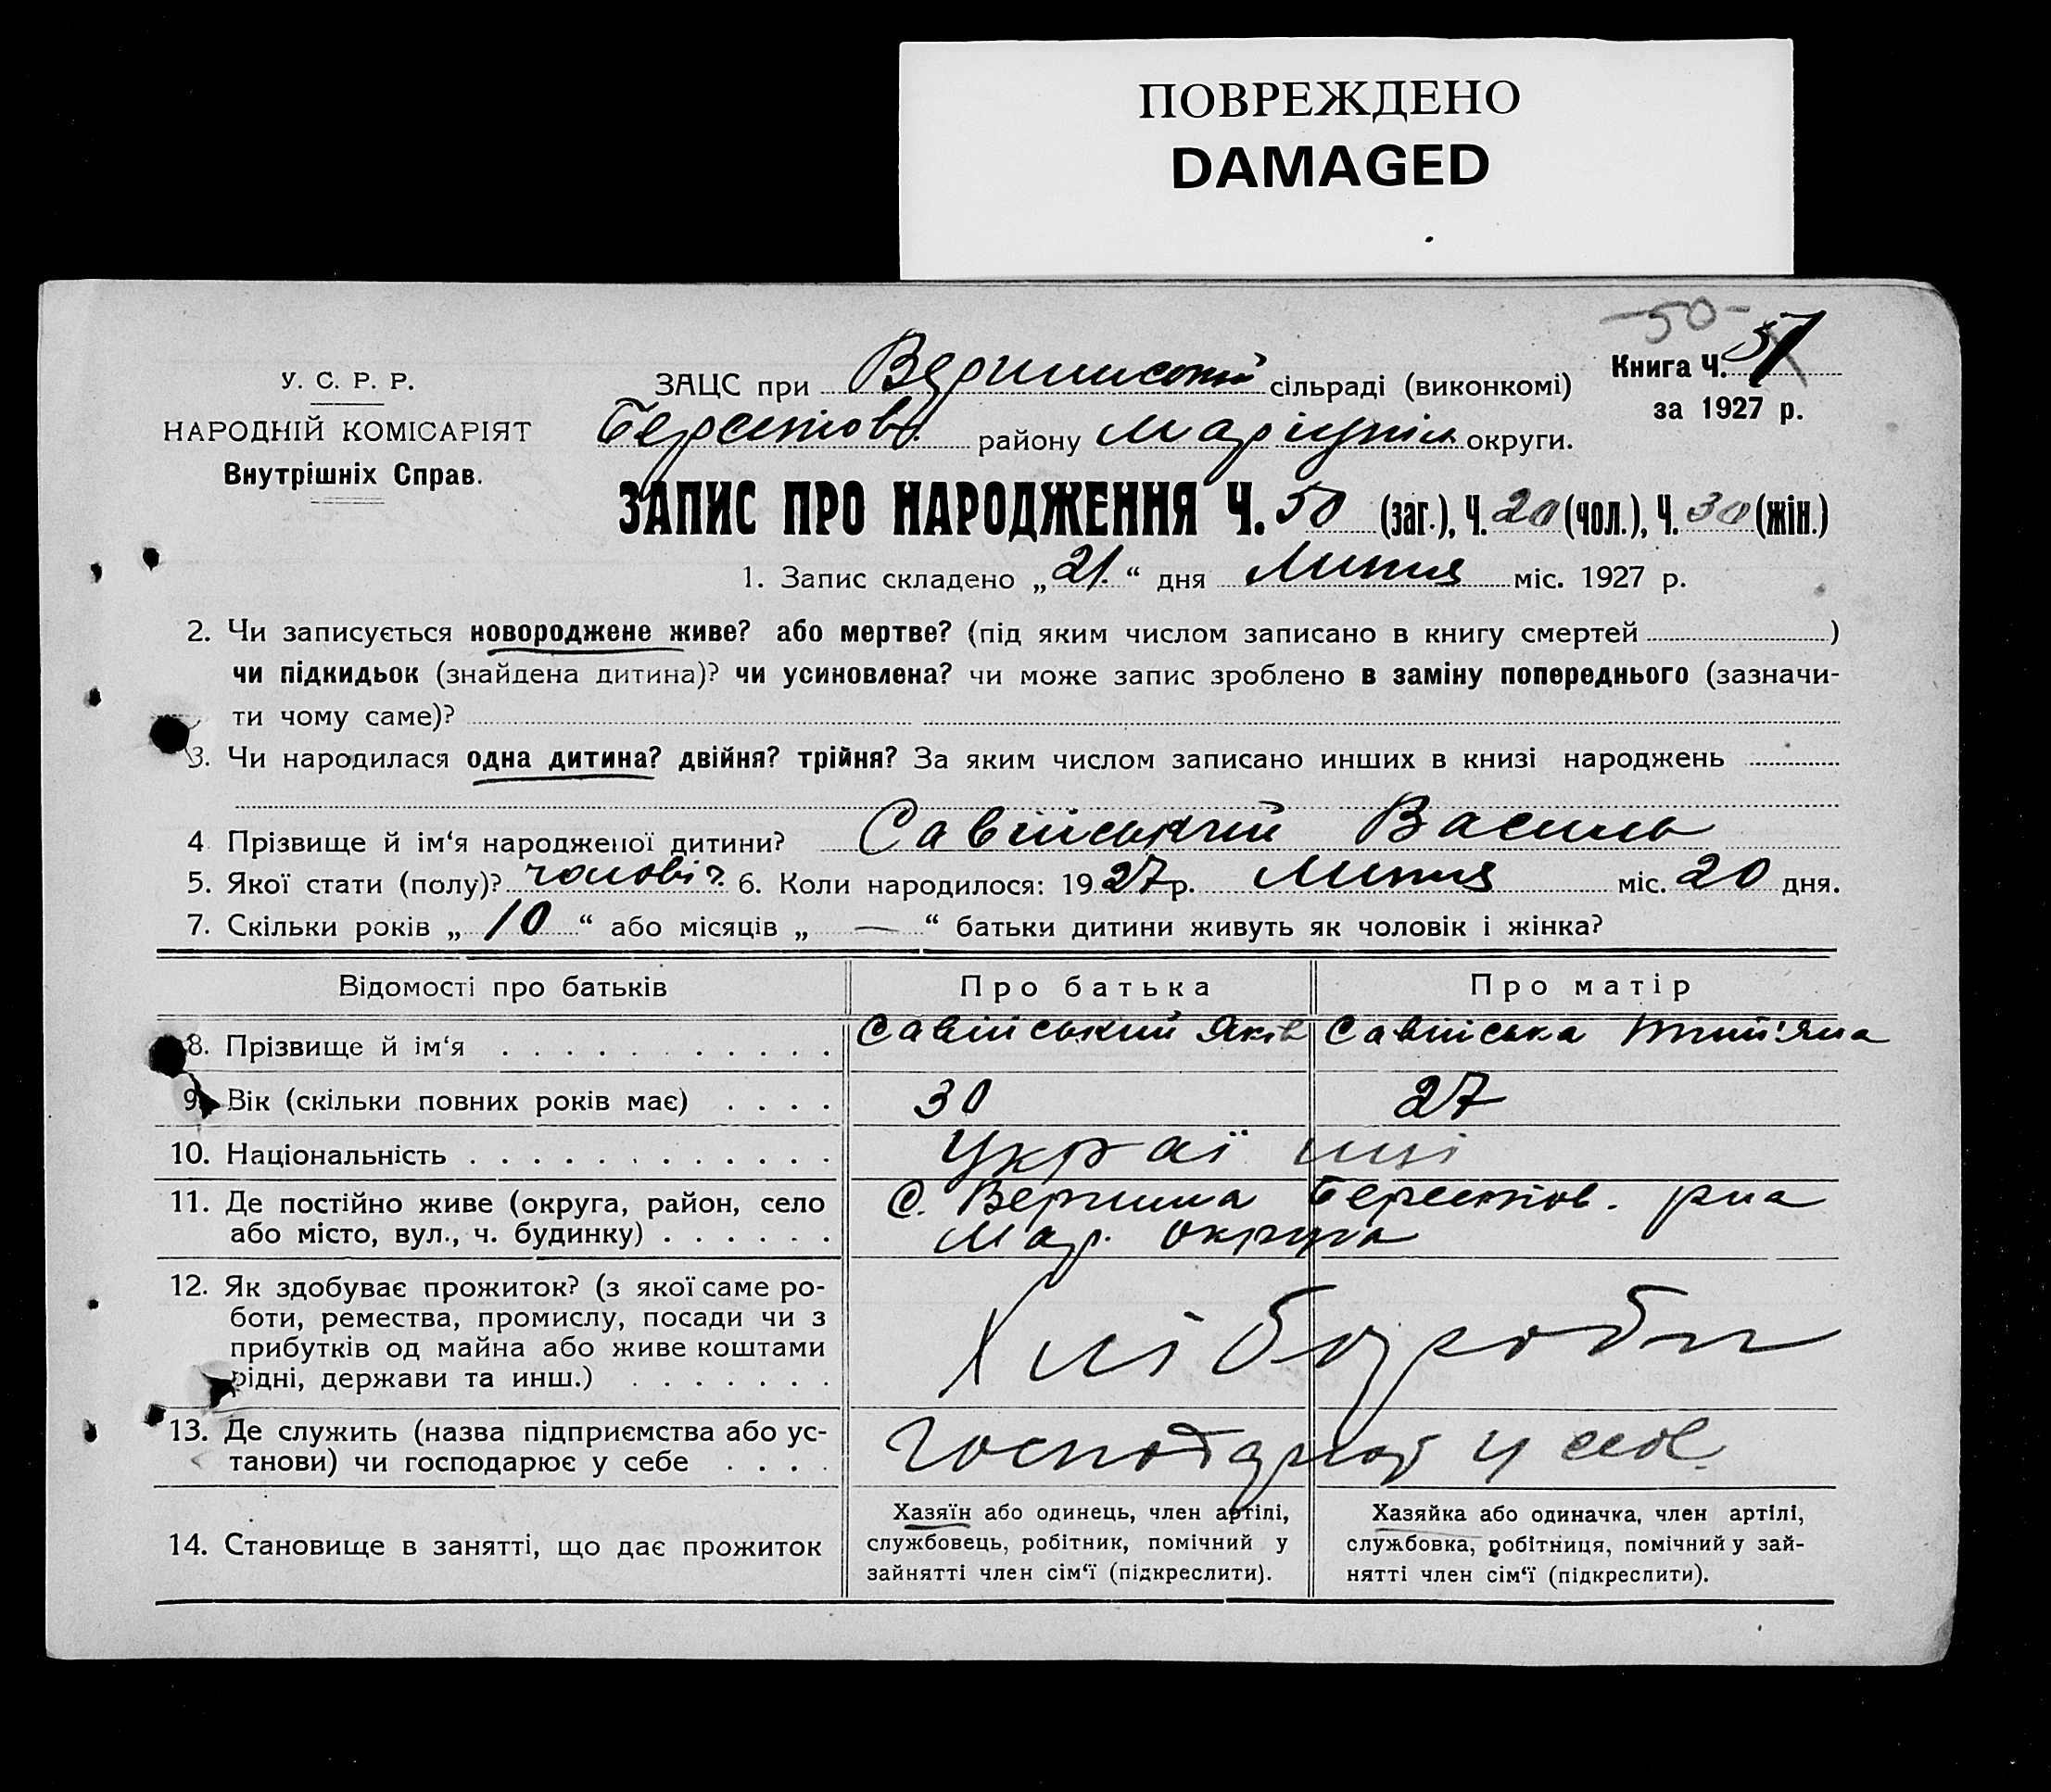 ПОВРЕЖДЕНО
DAMAGED
-50-
У. С. Р. Р.
НАРОДНІЙ КОМІСАРІЯТ
Внутрішніх Справ.
ЗАЦС при Вершинській сільраді (виконкомі)
Книга Ч. 51
за 1927 р.
Берестов. району Маріупіл. округи.
ЗАПИС ПРО НАРОДЖЕННЯ Ч. 50 (заг.), Ч. 20 (чол.), Ч. 30 (жін.)
1. Запис складено „21.“ дня Липня міс. 1927 р.
2. Чи записується новороджене живе? або мертве? (під яким числом записано в книгу смертей )
чи підкидьок (знайдена дитина)? чи усиновлена? чи може запис зроблено в заміну попереднього (зазначи-
ти чому саме)?
3. Чи народилася одна дитина? двійня? трійня? За яким числом записано инших в книзі народжень
4 Прізвище й ім‘я народженої дитини? Савійський Василь
5. Якої стати (полу)? чоловіч. 6. Коли народилося: 1927 р. Липня міс. 20 дня.
7. Скільки років „10“ або місяців „—“ батьки дитини живуть як чоловік і жінка?
Відомості про батьків Про батька Про матір
8. Прізвище й ім‘я Савійський Яків Савійська
9. Вік (скільки повних років має) 30 27
10. Національність Украї нці
11. Де постійно живе (округа, район, село С. Вершина Берестов. рна
або місто, вул., ч. будинку) Мар. округа
12. Як здобуває прожиток? (з якої саме ро-
боти, ремества, промислу, посади чи з
прибутків од майна або живе коштами
рідні, держави та инш.) Хлібороби
13. Де служить (назва підприємства або ус-
танови) чи господарює у себе у
14. Становище в занятті, що дає прожиток
Хазяїн або одинець, член артілі,
службовець, робітник, помічний у
зайнятті член сім‘ї (підкреслити).
Хазяйка або одиначка, член артілі,
службовка, робітниця, помічний у зай-
нятті член сім‘ї (підкреслити).